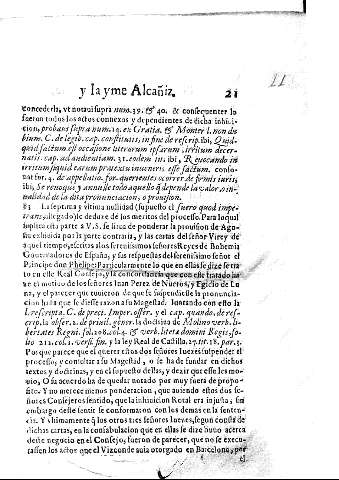 y Iayme Alcañiz.
21
concederla, vt notaui supra num. 39. & 40. & consequenter lo
fueron todos los actos connexos y dependientes de dicha inhiui-
cion, probans supra num. 19. ex Gratia. & Monter l. non du
bium. C. de legib. cap. constitutis, in fine de rescrip. ibi, Quid-
quid factum est occasione literarum ipsarum, irritum decer-
natis. cap. ad audientiam. 31. eodem tit. ibi, Reuocando in
irritum si quid earum prætextu inueneris esse factum. confor
tat for. 4. de appellatio. For. querentes ocorrer de firmis iuris,
ibi, Se renoque y annulle todo aquello q̃ depende
nalidad de la dita pronunciacion, o prouision.
La septima y vltima nullidad (supuesto el fuero quod impe-
trans, alegado) se deduze de los meritos del processo. Para lo qual
suplica esta parte a V.S. se sirua de ponderar la prouision de Ago-
sto exhibida por la parte contraria, y las cartas del señor Virey de
aquel tiempo, escritas a los serenissimos señores Reyes de Bohemia
Gouernadores de España, y las respuestas del serenissimo señor el
Principe don Phelipe: Particularmente lo que en ellas se dize se tra
to en este Real Consejo, y la concordancia que con este tratado tu-
uo el motiuo de los señores Iuan Perez de Nueros, y Egidio de Lu
na, y el parecer que tuuieron de que se suspendiesse la pronuncia-
cion hasta que se diesse razon a su Magestad. Iuntando con ello la
l. rescripta. C. de preci. Imper. offer. y el cap. quando, de res-
crip. la de priuil. gener. la doctrina de Molino verb. li-
bertates Regni. fol. 208. col. 4. & verb. litera domini Regis, fo-
lio 212. col. 1. versi. fin. y la ley Real de Castilla. 27. tit. 18. par. 3.
Porque parece que el querer estos dos señores Iuezes suspender el
processo, y consultar a su Magestad, o se ha de fundar en dichos
textos y doctrinas, y en el supuesto dellas, y dezir que esse les mo-
uio, O su acuerdo ha de quedar notado por muy fuera de propo-
sito. Y no merece menos ponderacion, que auiendo estos dos se-
ñores Consejeros sentido, que la inhiuicion Rotal era injusta, sin
embargo deste sentir se conformaton con los demas en la senten-
cia. Y vltimamente q̃ los otros tres señores Iuezes, segun consta de
dichas cartas, en la consabulacion que en ellas se dize huuo acerca
deste negocio en el Consejo, fueron de parecer, que no se execu-
tassen los actos que el Vizconde auia otorgado en Barcelona, por
el